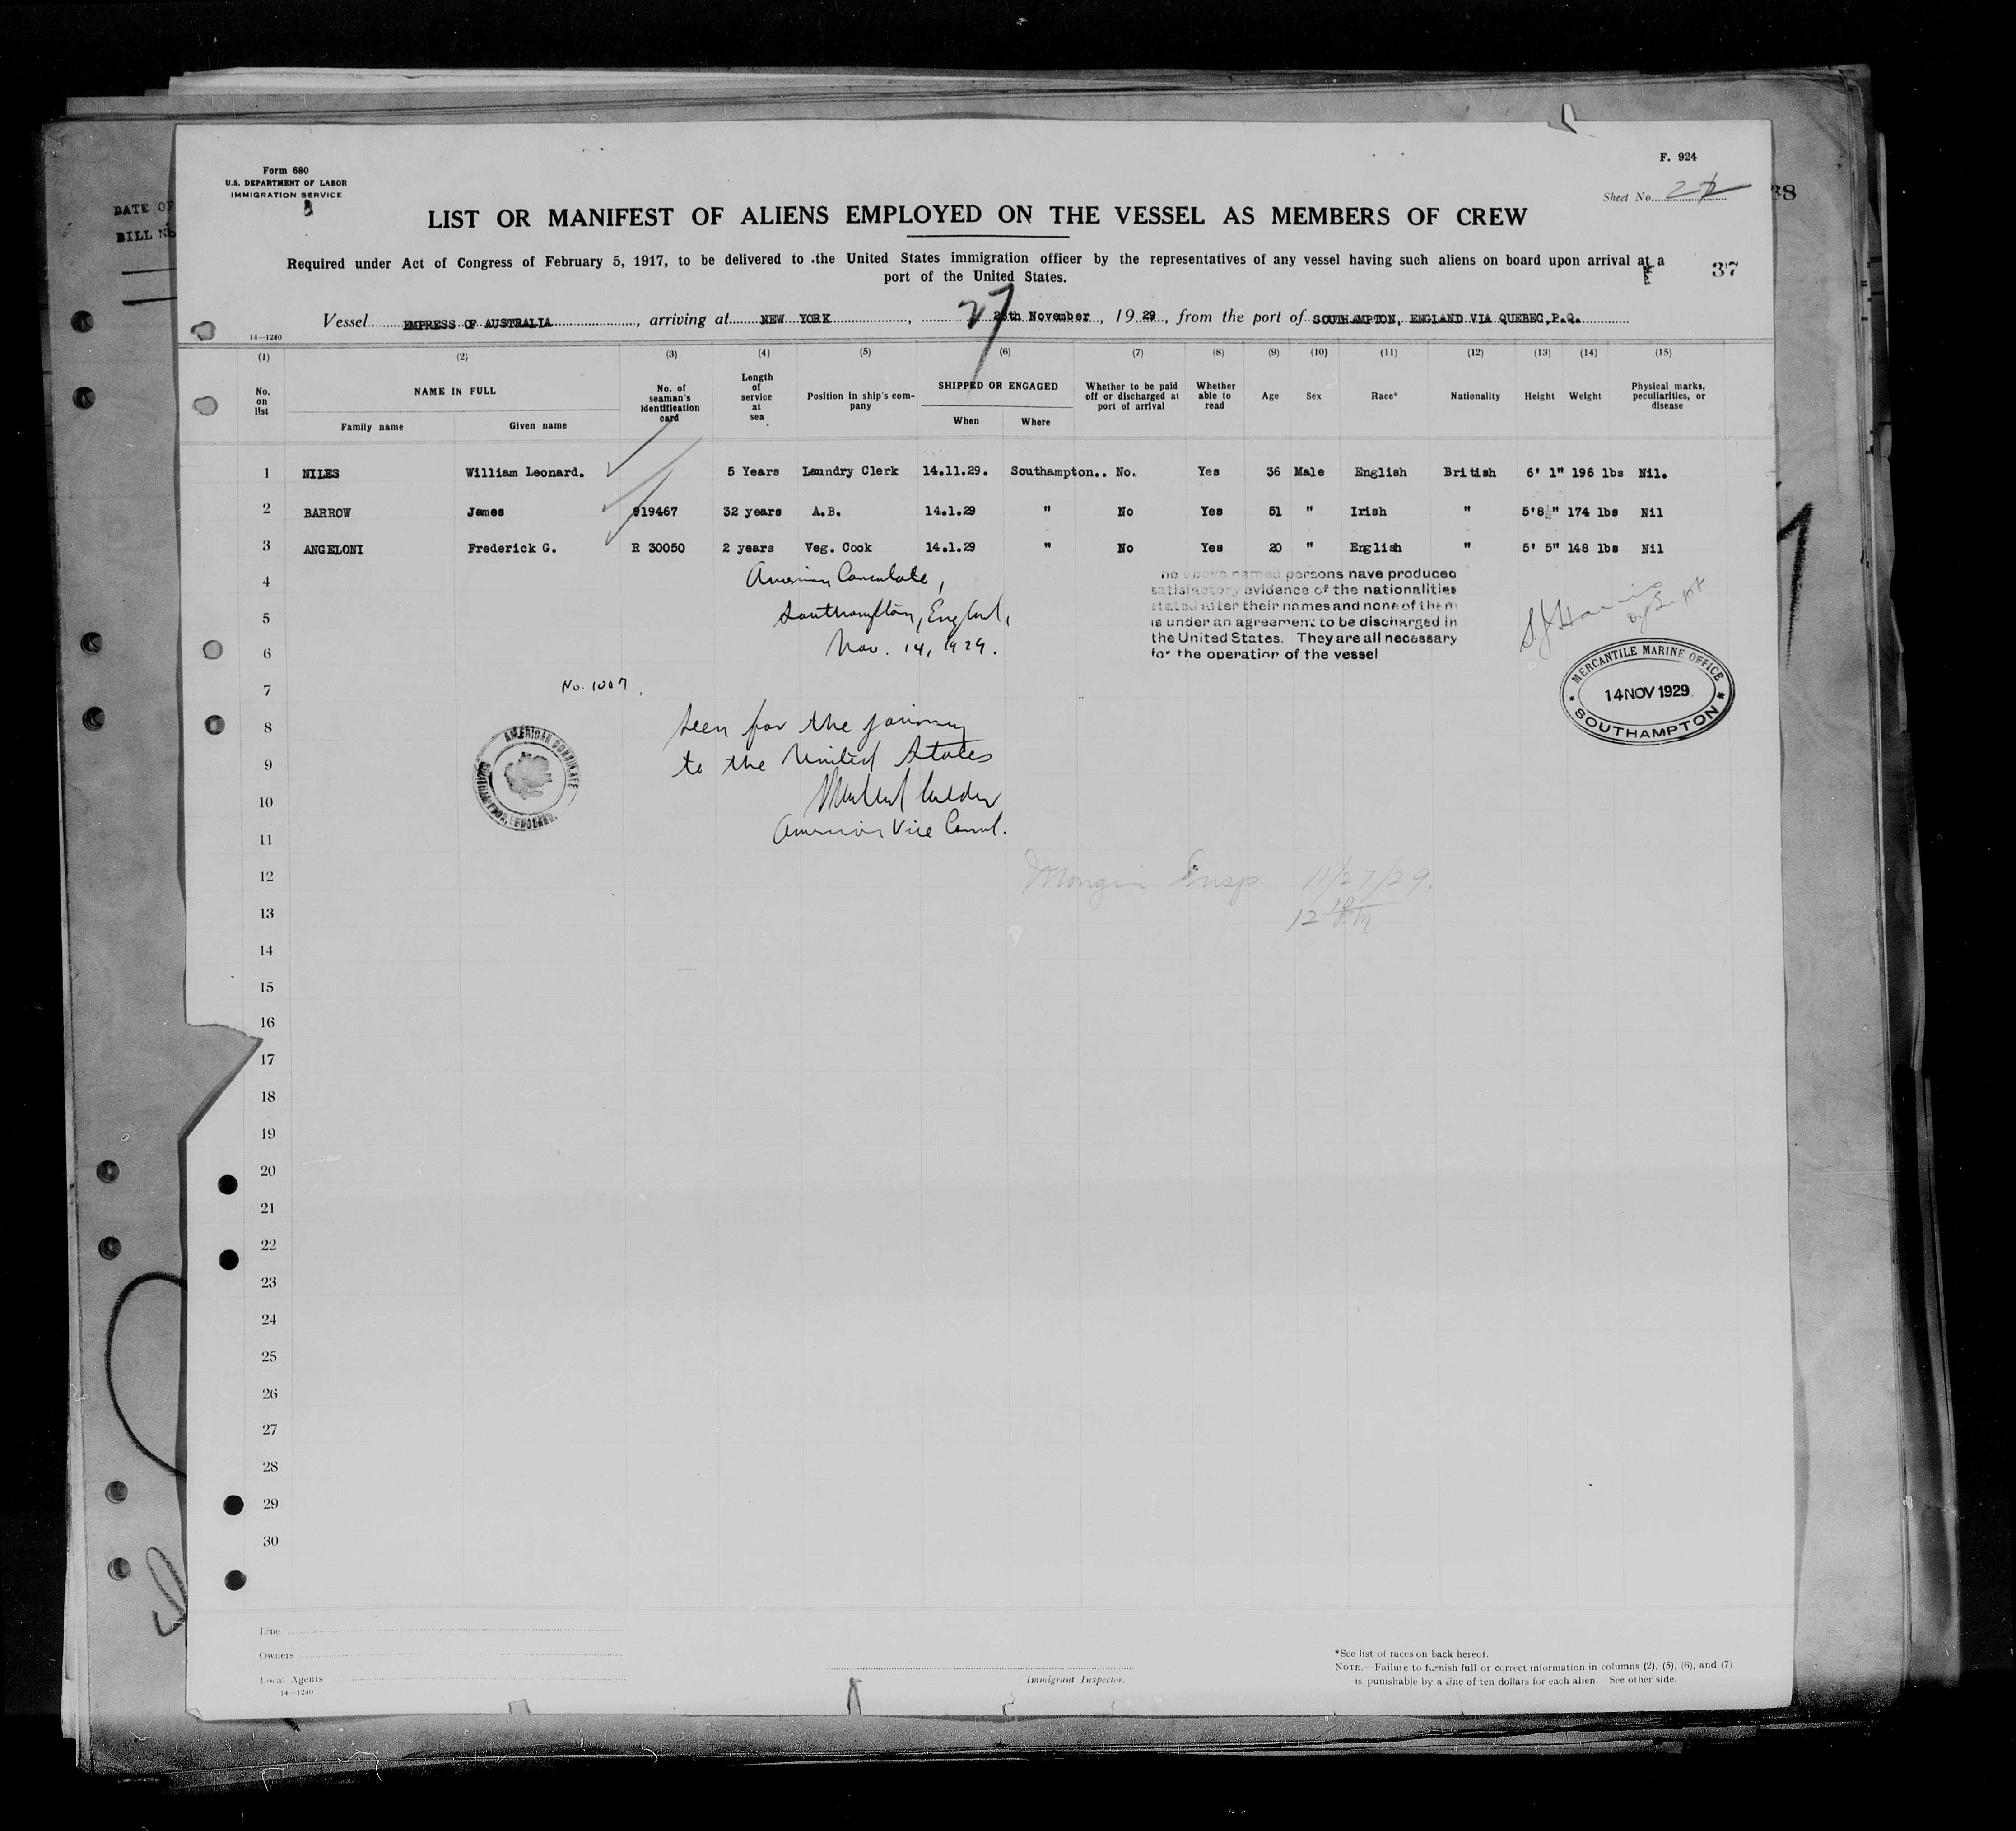 Form 680
U.S. DEPARTMENT OF LABOR
IMMIGRATION SERVICE
DATE OF
BILL No
F. 924
Sheet No. 2
38
LIST OR MANIFEST OF ALIENS EMPLOYED ON THE VESSEL AS MEMBERS OF CREW
Required under Act of Congress of February 5, 1917, to be delivered to the United States immigration officer by the representatives of any vessel having such aliens on board upon arrival at a
port of the United States.
37
Vessel EMPRESS OF AUSTRALIA, arriving at NEW YORK, 27 26th November, 1929, from the port of SOUTHAMPTON, ENGLAND VIA QUEBEC,P.Q.
14—1240
(1) (2) (3) (4) (5) (6) (7) (8) (9) (10) (11) (12) (13) (14) (15)
No. on list NAME IN FULL No. of seaman's identification card Length of service at sea Position in ship's company SHIPPED OR ENGAGED Whether to be paid off or discharged at port of arrival Whether able to read Age Sex Race* Nationality Height Weight Physical marks, peculiarities, or disease
Family name Given name When Where
1 NILES William Leonard. 5 Years Laundry Clerk 14.11.29. Southampton.. No. Yes 36 Male English British 6' 1" 196 lbs Nil.
2 BARROW James 919467 32 years A.B. 14.1.29 " No Yes 51 " Irish " 5'8½" 174 lbs Nil
3 ANGELONI Frederick G. R 30050 2 years Veg. Cook 14.1.29 " No Yes 20 " English " 5' 5" 148 lbs Nil
4
5
6
7
8
9
10
11
12
13
14
15
16
17
18
19
20
21
22
23
24
25
26
27
28
29
30
American Consulate,
Southampton, England,
Nov. 14, 1929.
No. 1007,
Seen for the journey
to the United States
American Vice Consul.
AMERICAN CONSULATE
SOUTHAMPTON, ENGLAND.
he above named persons have produced
satisfactory evidence of the nationalities
stated after their names and none of them
is under an agreement to be discharged in
the United States. They are all necessary
for the operation of the vessel
MERCANTILE MARINE OFFICE
14 NOV 1929
SOUTHAMPTON
Mongin Insp. 11/27/29.
12 10 P.M
Line
Owners
Local Agents
14—1240
Immigrant Inspector.
*See list of races on back hereof.
NOTE.—Failure to furnish full or correct information in columns (2), (5), (6), and (7)
is punishable by a fine of ten dollars for each alien. See other side.